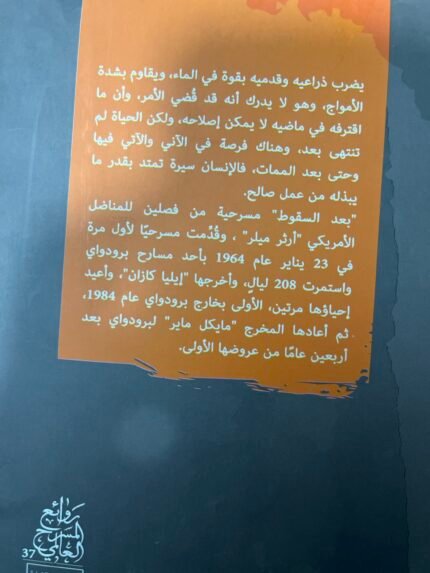 يضرب ذراعيه وقدميه بقوة في الماء، ويقاوم بشدة
الأمواج، وهو لا يدرك أنه قد قُضي الأمر، وأن ما
اقترفه في ماضيه لا يمكن إصلاحه، ولكن الحياة لم
تنتهى بعد، وهناك فرصة في الآني والآتي فيها
وحتى بعد الممات، فالإنسان سيرة تمتد بقدر ما
يبذله من عمل صالح.
"بعد السقوط" مسرحية من فصلين للمناضل
الأمريكي "أرثر ميلر" ، وقُدِّمت مسرحيًا لأول مرة
في 23 يناير عام 1964 بأحد مسارح برودواي
واستمرت 208 ليالٍ، وأخرجها "إيليا كازان"، وأعيد
إحياؤها مرتين، الأولى بخارج برودواي عام 1984،
ثم أعادها المخرج "مايكل ماير" لبرودواي بعد
أربعين عامًا من عروضها الأولى.
روائع
المسرح
العالمي
37